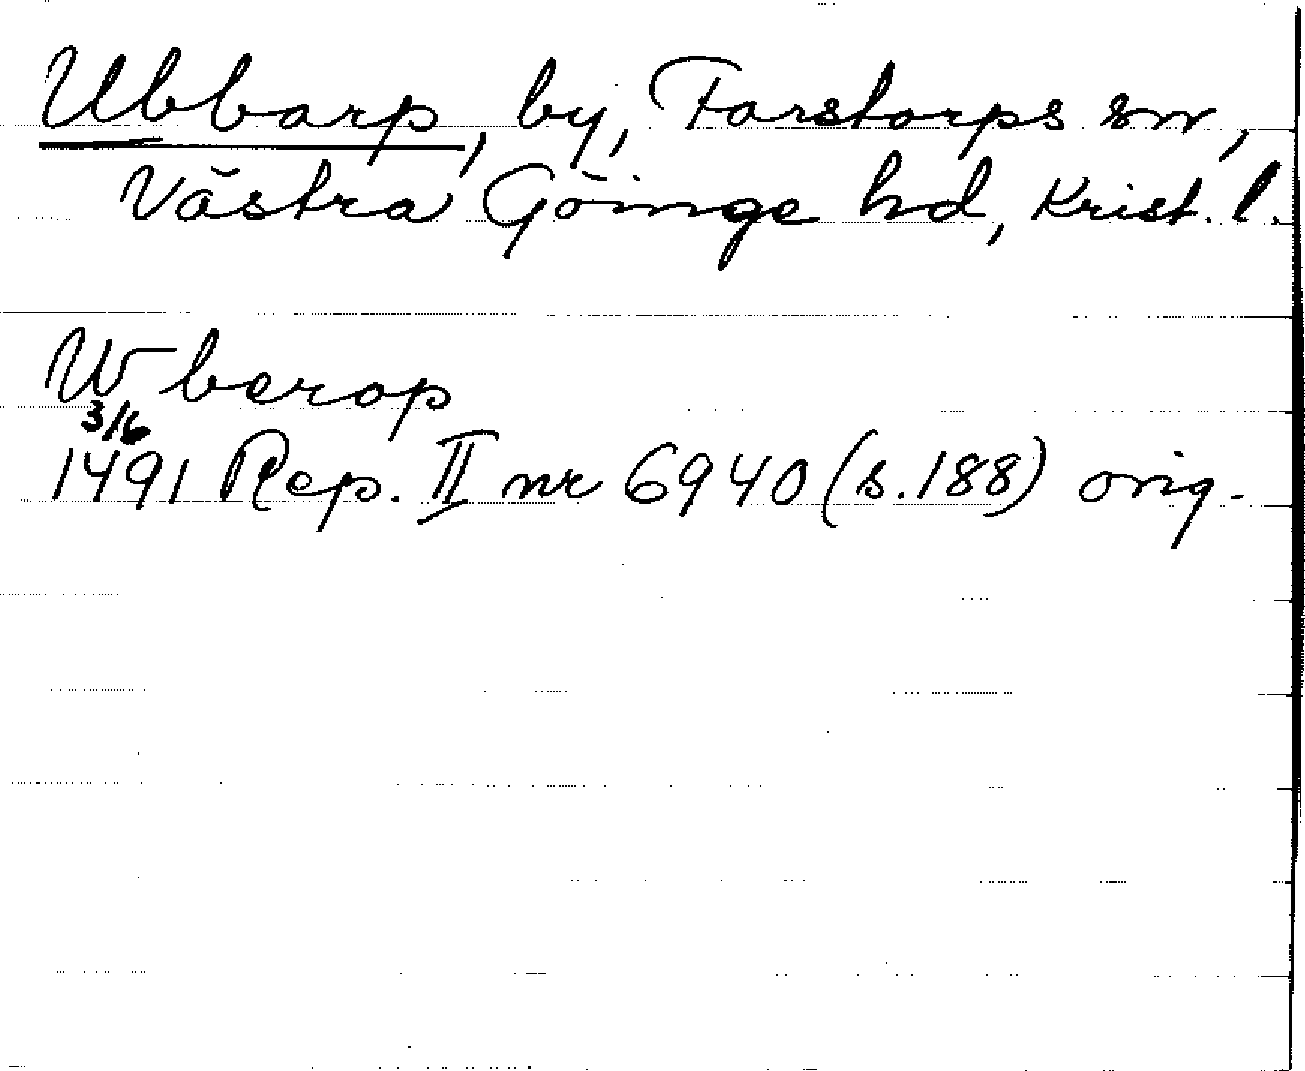 Ubbarp, by, Farstorps sn,
Västra Göinge hd, Krist. l.
Wberop
3/6
1491 Rep. II nr 6940 (s. 188) orig.